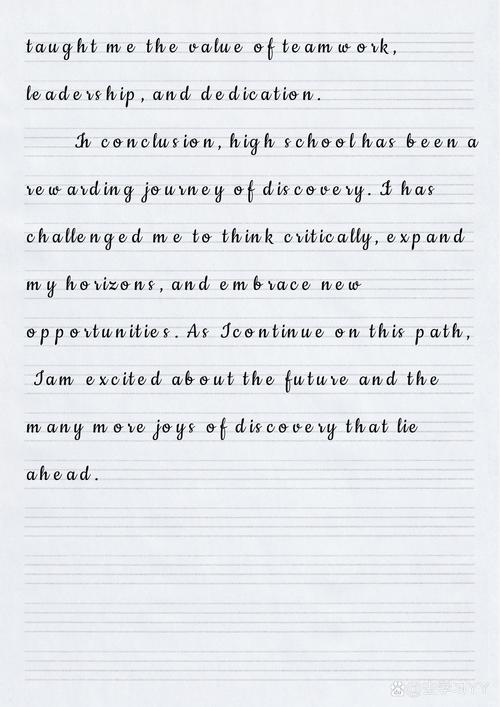 taught me the value of teamwork,
leadership, and dedication.
In conclusion, high school has been a
rewarding journey of discovery. It has
challenged me to think critically, expand
my horizons, and embrace new
opportunities. As I continue on this path,
I am excited about the future and the
many more joys of discovery that lie
ahead.